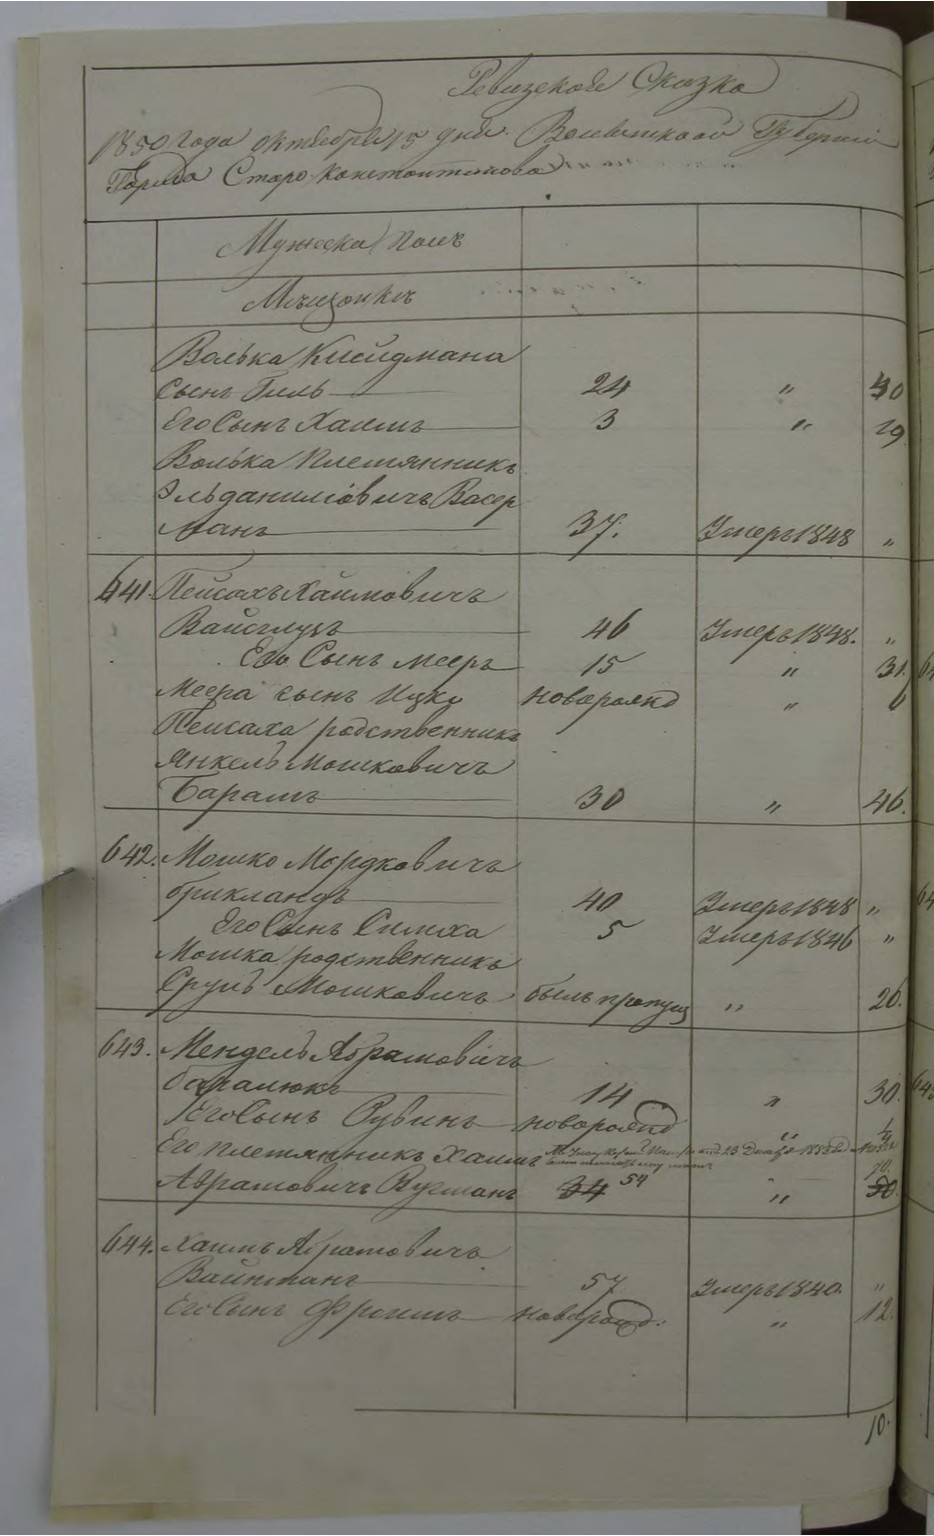 Ревизская Сказка
1850 года октября 15 дня. Волынской Губернии
Города Старо Константинова
Мужеска полъ
Мъщанъ
Волька
сынъ Гиль 24 " 40
Его Сынъ Хаимъ 3 " 19
Волька племянникъ
Васер
манъ 37. Умеръ 1848 "
641. Пейсахъ Хаимовичъ
46 Умеръ 1848. "
Его Сынъ Мееръ 15 " 31.
Меера сынъ Ицко новорожд " 6
Пейсаха родственникъ
Янкель Мошковичъ
Барамъ 30 " 46.
642. Мошко Мордковичъ
40 Умеръ 1848 "
Его Сынъ Симха 5 Умеръ 1846 "
Мошка родственникъ
Сруль Мошковичъ былъ пропущ " 26.
643. Мендель Абрамовичъ
14 " 30.
Его Сынъ Рувинъ новорожд "
Его племянникъ Хаимъ
Аврамовичъ 34 54 " 50. 70.
644. Хаимъ Абрамовичъ
57 Умеръ 1840. "
Его Сынъ Фроимъ новорожд. " 12.
10.